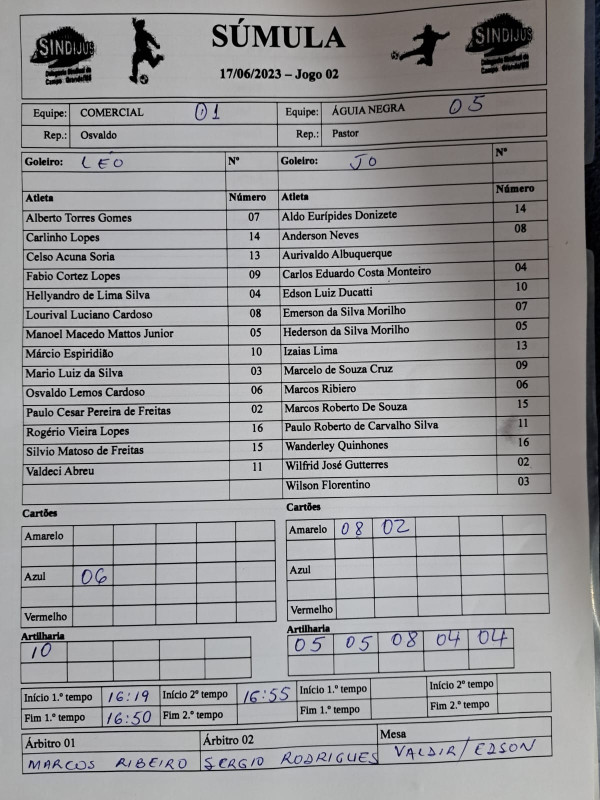 SINDIJUS
SÚMULA
SINDIJUS
17/06/2023 – Jogo 02
Equipe: COMERCIAL 01 Equipe: ÁGUIA NEGRA 05
Rep.: Osvaldo Rep.: Pastor
Goleiro: LÉO Nº Goleiro: JO Nº
Atleta Número Atleta Número
Alberto Torres Gomes 07 Aldo Eurípides Donizete 14
Carlinho Lopes 14 Anderson Neves 08
Celso Acuna Soria 13 Aurivaldo Albuquerque
Fabio Cortez Lopes 09 Carlos Eduardo Costa Monteiro 04
Hellyandro de Lima Silva 04 Edson Luiz Ducatti 10
Lourival Luciano Cardoso 08 Emerson da Silva Morilho 07
Manoel Macedo Mattos Junior 05 Hederson da Silva Morilho 05
Márcio Espiridião 10 Izaias Lima 13
Mario Luiz da Silva 03 Marcelo de Souza Cruz 09
Osvaldo Lemos Cardoso 06 Marcos Ribiero 06
Paulo Cesar Pereira de Freitas 02 Marcos Roberto De Souza 15
Rogério Vieira Lopes 16 Paulo Roberto de Carvalho Silva 11
Silvio Matoso de Freitas 15 Wanderley Quinhones 16
Valdeci Abreu 11 Wilfrid José Gutterres 02
Wilson Florentino 03
Cartões Cartões
Amarelo Amarelo 08 02
Azul 06 Azul
Vermelho Vermelho
Artilharia Artilharia
10 05 05 08 04 04
Início 1.º tempo 16:19 Início 2º tempo 16:55 Início 1.º tempo Início 2º tempo
Fim 1.º tempo 16:50 Fim 2.º tempo Fim 1.º tempo Fim 2.º tempo
Árbitro 01 Árbitro 02 Mesa
MARCOS RIBEIRO SERGIO RODRIGUES VALDIR/EDSON